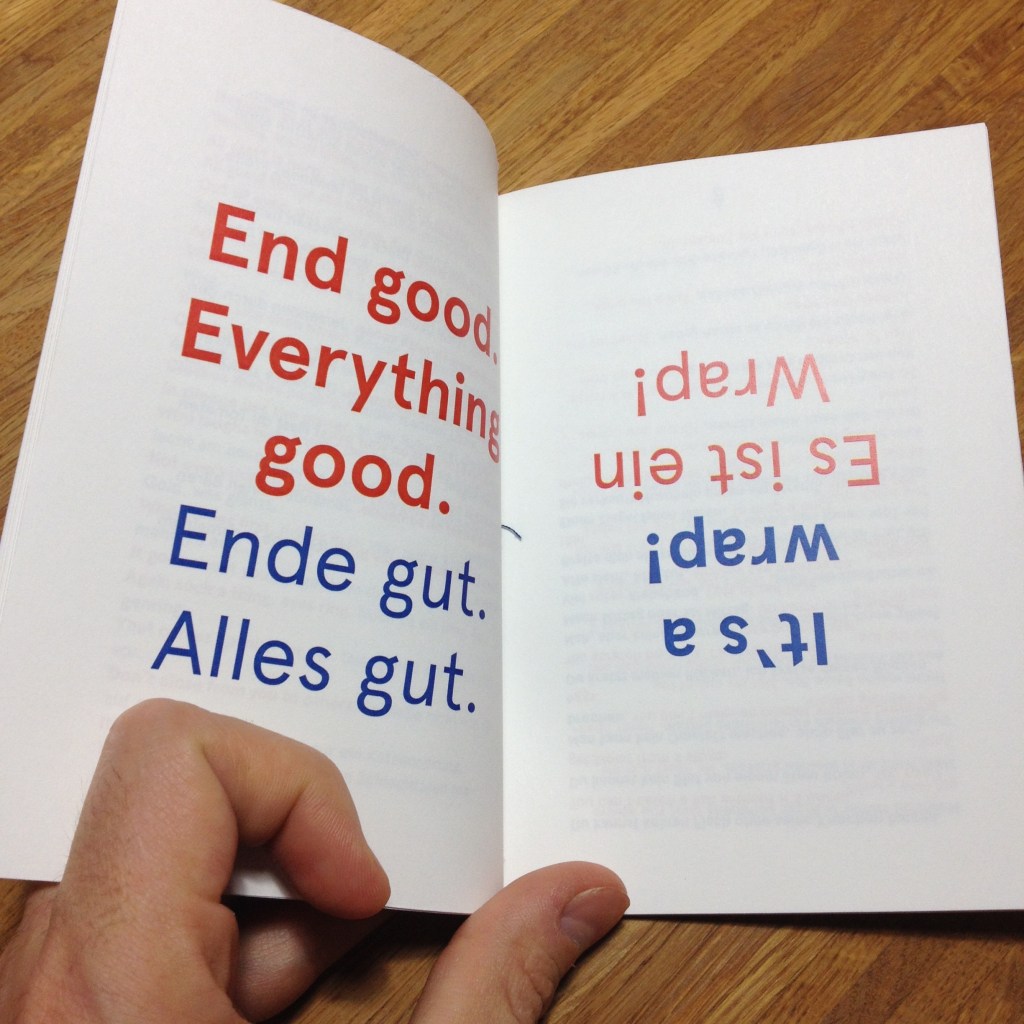 End good.
Everything
good.
Ende gut.
Alles gut.
It's a
wrap!
Es ist ein
Wrap!